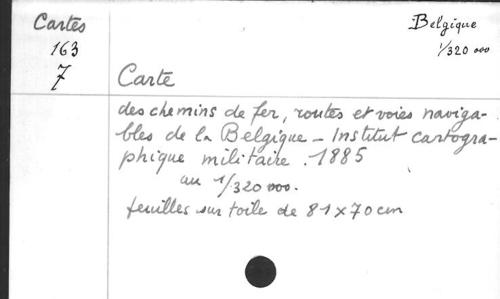 Cartes
163
7
Belgique
1/320 000
Carte
des chemins de fer, routes et voies naviga-
bles de la Belgique - Institut cartogra-
phique militaire. 1885
au 1/320 000.
feuilles sur toile de 81 x 70 cm